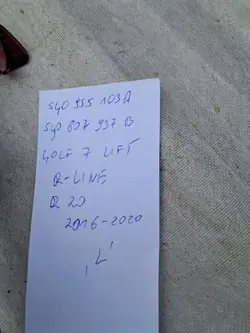 5G0 955 103A
5G0 807 937 B
GOLF 7 LIFT
R-LINE
R 20
2016-2020
'L'